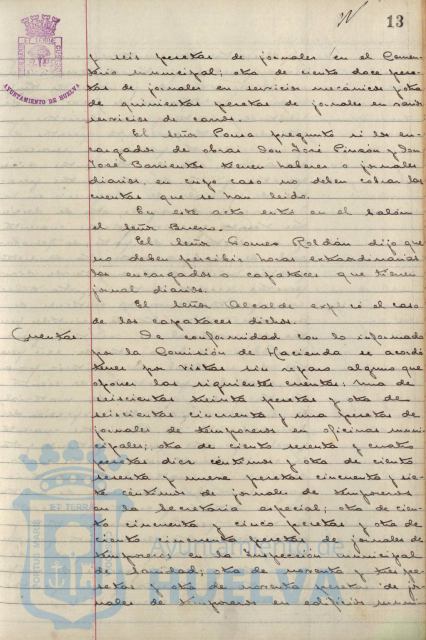 13
AYUNTAMIENTO DE HUELVA
y seis pesetas de jornales en el Cemen-
terio municipal; otra de ciento doce pese-
tas de jornales en servicios mecánicos y otra
de quinientas pesetas de jornales en varios
servicios de carros.
El señor Ponsa pregunta si los en-
cargados de obras Don José Pinzón y Don
José Barrientos tienen haberes o jornales
diarios, en cuyo caso no deben cobrar las
cuentas que se han leido.
En este acto entró en el salón
el señor Bueno.
El señor Gomez Roldán dijo que
no deben percibir horas extraordinarias
los encargados o capataces que tienen
jornal diarios.
El señor Alcalde explicó el caso
de los capataces dichos.
Cuentas. De conformidad con lo informado
por la Comisión de Hacienda se acordó
tener por vistas sin reparo alguno que
oponer las siguientes cuentas: Una de
seiscientas treinta pesetas y otra de
seiscientas cincuenta y una pesetas de
jornales de temporeros en oficinas muni-
cipales; otra de ciento sesenta y cuatro
pesetas diez céntimos y otra de ciento
sesenta y nueve pesetas cincuenta y sie-
te céntimos de jornales de temporeros
en la Secretaria especial; otra de cien-
to cincuenta y cinco pesetas y otra de
ciento cincuenta pesetas de jornales de
temporeros en la Inspección municipal
de Sanidad; otra de noventa y tres pe-
setas y otra de noventa pesetas de jor-
nales de temporeros en edificios muni-
Ayuntamiento de
HUELVA